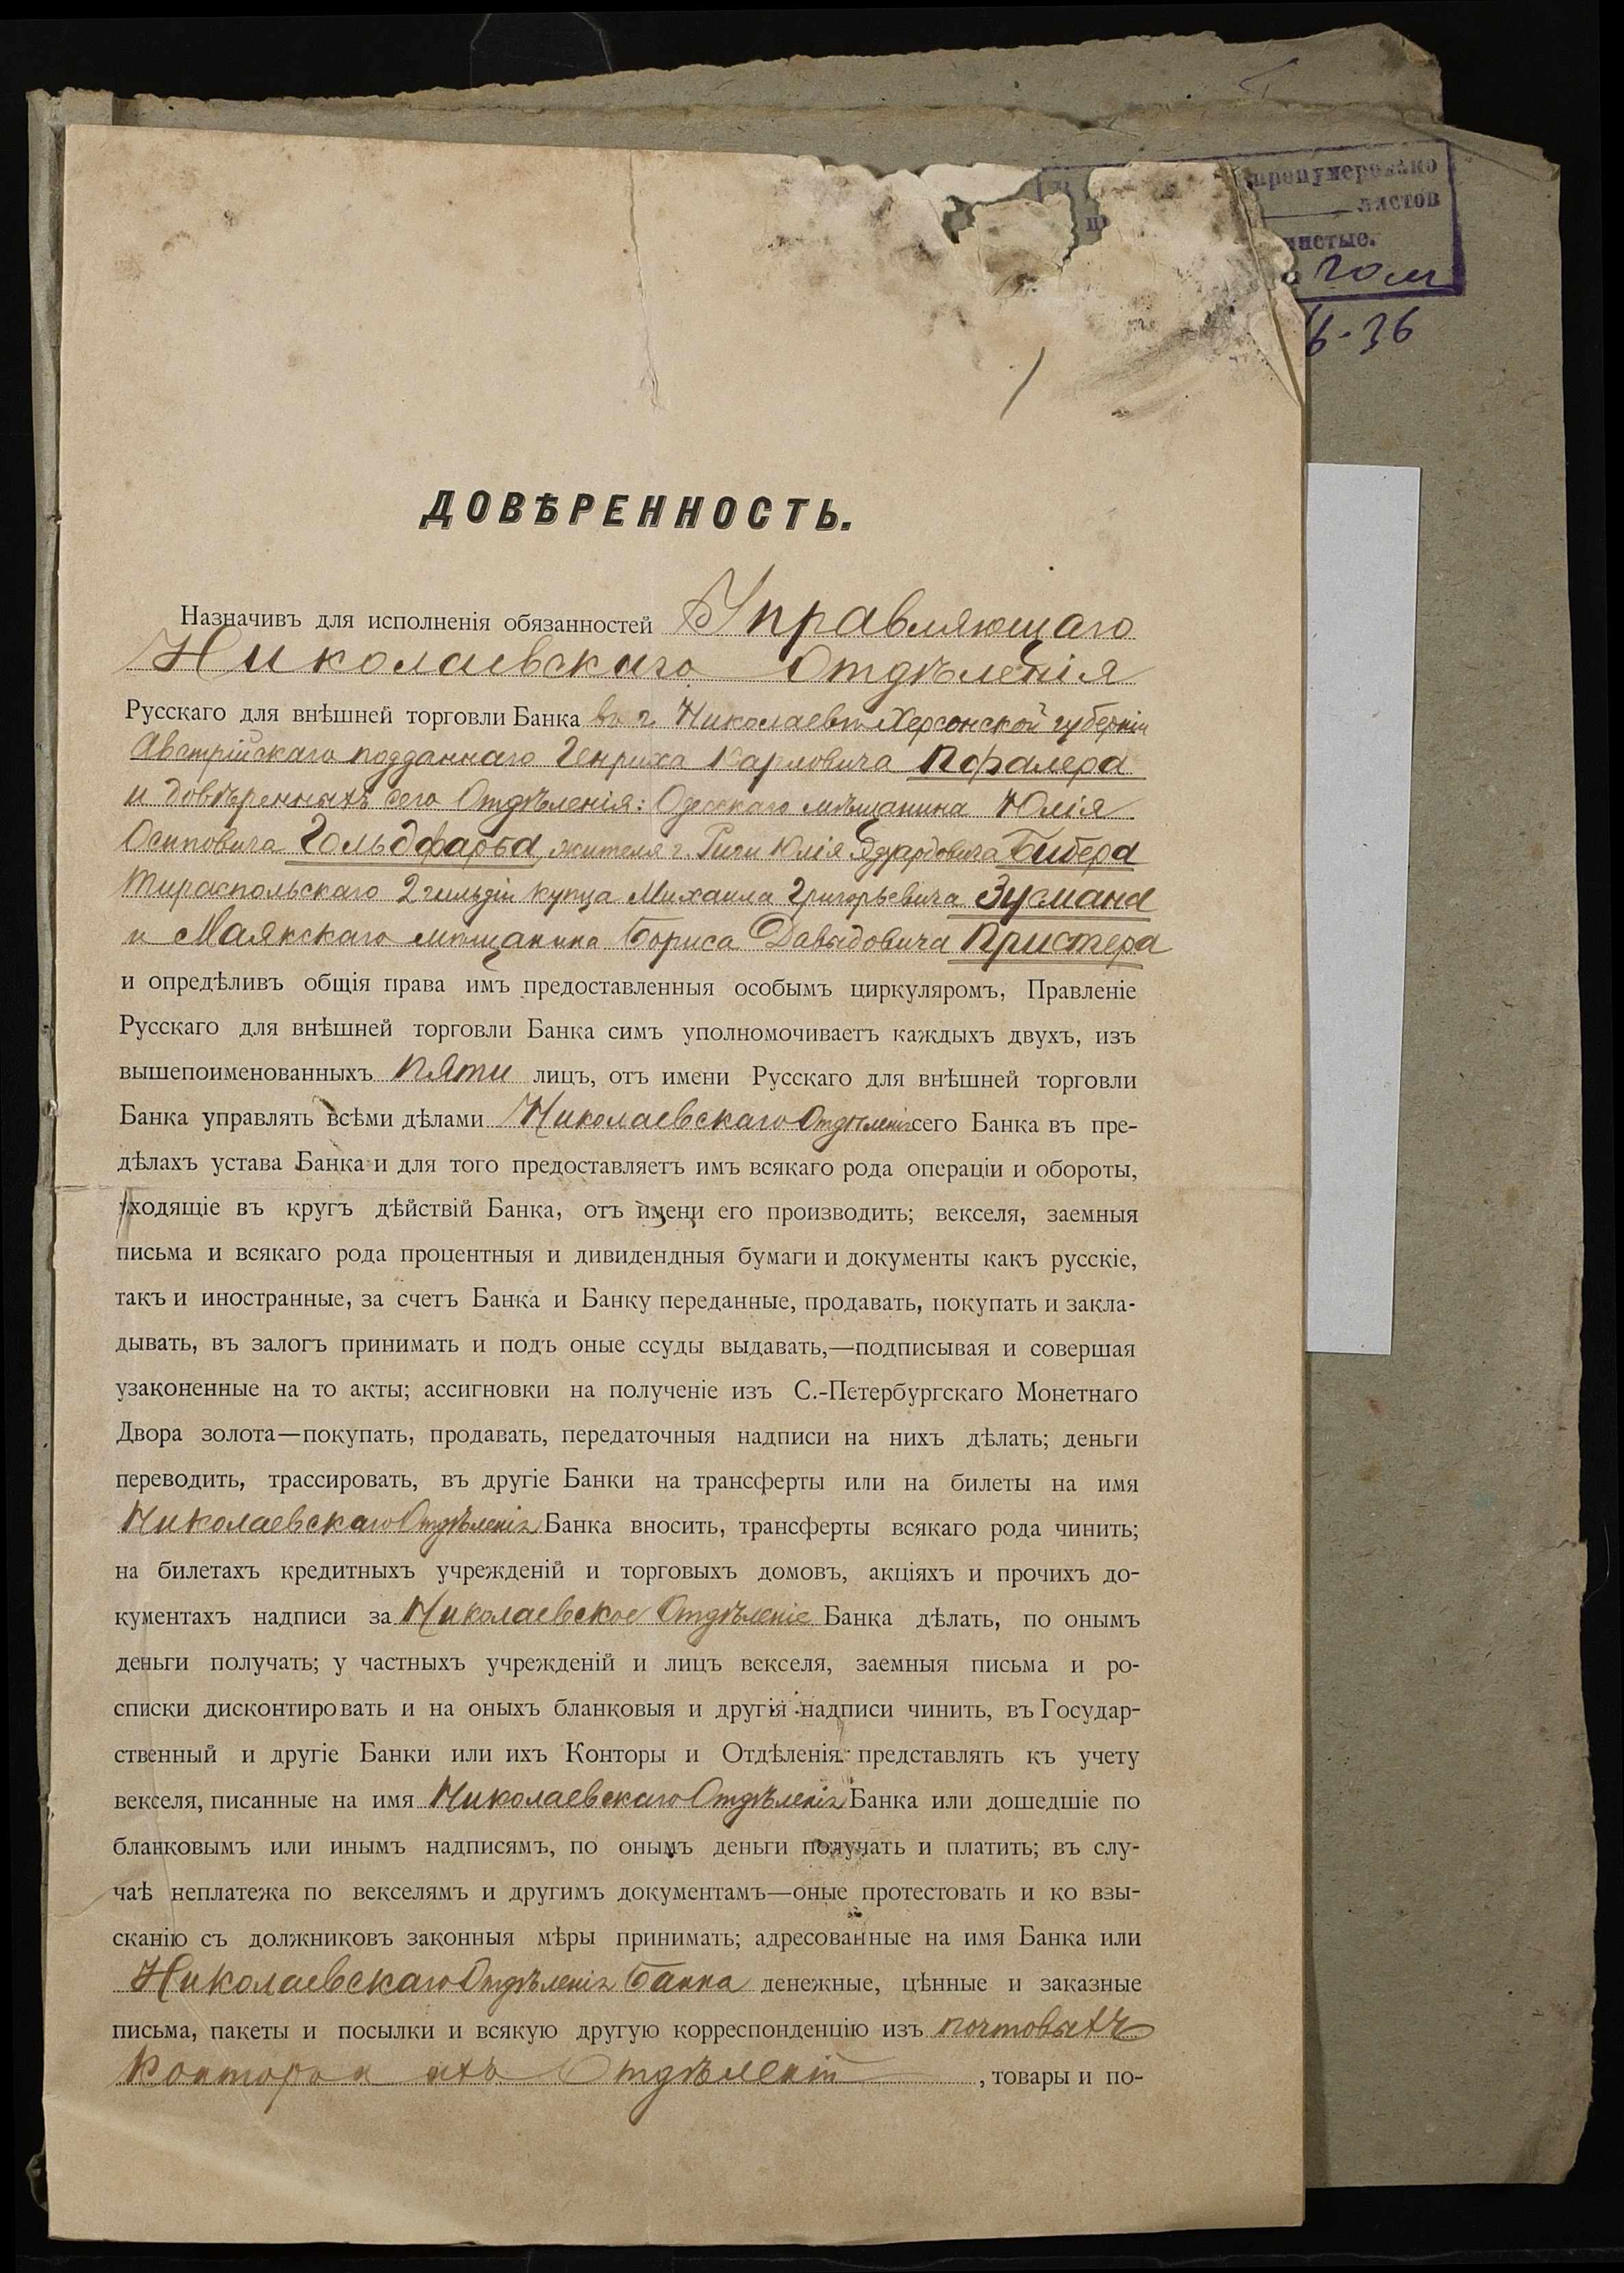 пронумеровано
листов
чистые.
том
6-36
ДОВѢРЕННОСТЬ.
Назначивъ для исполненія обязанностей Управляющаго
Николаевскаго Отдѣленія
Русскаго для внѣшней торговли Банка въ г. Николаевѣ Херсонской губерніи
Австрійскаго подданнаго Генриха Карловича Пфалера
и довѣренныхъ сего Отдѣленія: Одесскаго мѣщанина Юлія
Осиповича Гольдфарба, жителя г. Риги Юлія Эдуардовича Бибера
Тираспольскаго 2 гильдіи купца Михаила Григорьевича Зусмана
и Маякскаго мѣщанина Бориса Давыдовича Пристера
и опредѣливъ общія права имъ предоставленныя особымъ циркуляромъ, Правленіе
Русскаго для внѣшней торговли Банка симъ уполномочиваетъ каждыхъ двухъ, изъ
вышепоименованныхъ пяти лицъ, отъ имени Русскаго для внѣшней торговли
Банка управлять всѣми дѣлами Николаевскаго Отдѣленія сего Банка въ пре-
дѣлахъ устава Банка и для того предоставляетъ имъ всякаго рода операціи и обороты,
входящіе въ кругъ дѣйствій Банка, отъ имени его производить; векселя, заемныя
письма и всякаго рода процентныя и дивидендныя бумаги и документы какъ русскіе,
такъ и иностранные, за счетъ Банка и Банку переданные, продавать, покупать и закла-
дывать, въ залогъ принимать и подъ оные ссуды выдавать,—подписывая и совершая
узаконенные на то акты; ассигновки на полученіе изъ С.-Петербургскаго Монетнаго
Двора золота—покупать, продавать, передаточныя надписи на нихъ дѣлать; деньги
переводить, трассировать, въ другіе Банки на трансферты или на билеты на имя
Николаевскаго Отдѣленія Банка вносить, трансферты всякаго рода чинить;
на билетахъ кредитныхъ учрежденій и торговыхъ домовъ, акціяхъ и прочихъ до-
кументахъ надписи за Николаевское Отдѣленіе Банка дѣлать, по онымъ
деньги получать; у частныхъ учрежденій и лицъ векселя, заемныя письма и ро-
списки дисконтировать и на оныхъ бланковыя и другія надписи чинить, въ Государ-
ственный и другіе Банки или ихъ Конторы и Отдѣленія представлять къ учету
векселя, писанные на имя Николаевскаго Отдѣленія Банка или дошедшіе по
бланковымъ или инымъ надписямъ, по онымъ деньги получать и платить; въ слу-
чаѣ неплатежа по векселямъ и другимъ документамъ—оные протестовать и ко взы-
сканію съ должниковъ законныя мѣры принимать; адресованные на имя Банка или
Николаевскаго Отдѣленія Банка денежные, цѣнные и заказные
письма, пакеты и посылки и всякую другую корреспонденцію изъ почтовыхъ
Конторъ и ихъ Отдѣленій , товары и по-